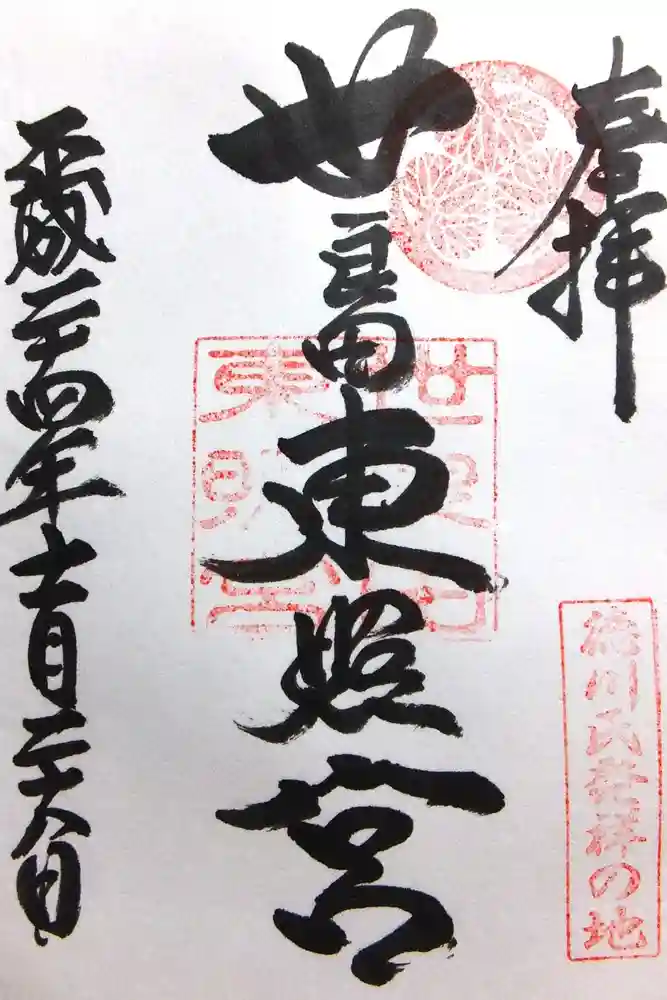 奉拝
徳川氏発祥の地
世良田東照宮
世良田
東照宮
平成二十四年十一月二十八日